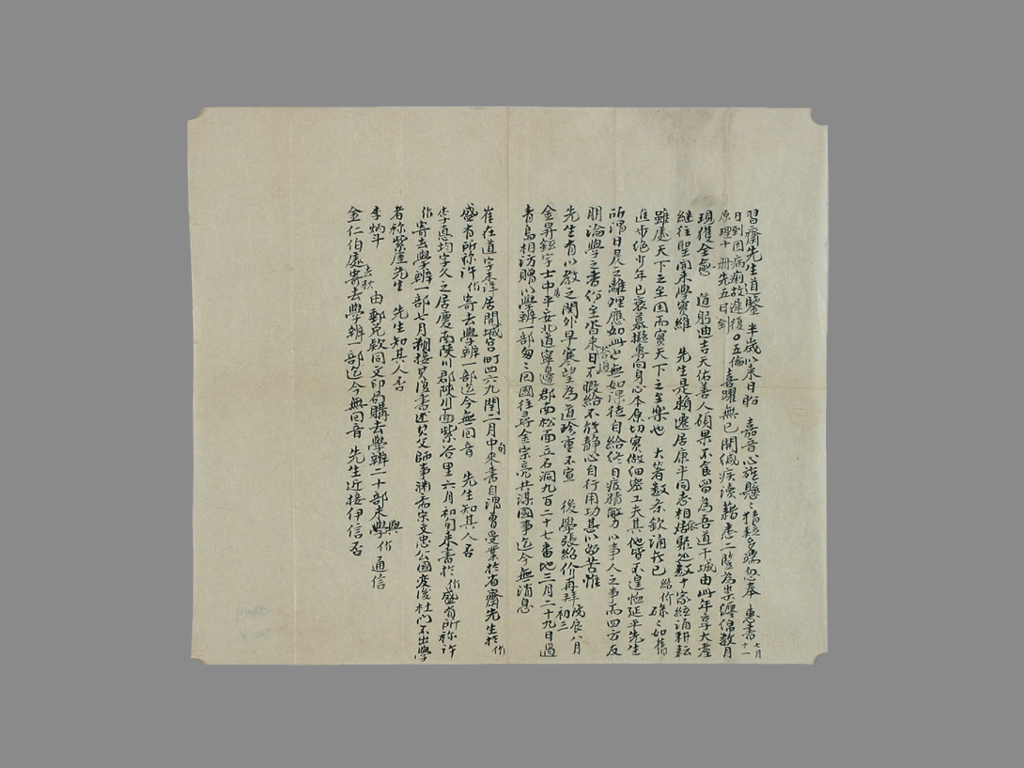 習齋先生道鑒 半歲以來日盼 嘉音心旌懸懸猜疑多端忽奉 惠書七月十一
日到因病痢故遲復 五倫 喜躍無已開緘疾讀藉悉二豎為祟纏綿數月
原理十冊先五日到
現獲全愈 道躬迪吉天佑善人碩果不食留為吾道干城由此年享大耋
繼往聖開來學實維 先生是賴遷居康平同志相居聚處數十家經誦耕耘
雖處天下之至困而實天下之至樂也 大著數条欽誦不已 紹价碌碌如舊
進步絕少年已衰暮擬專向身心本原切實做細密工夫其他皆不遑恤延平先生
所謂日昃之離理應如此也無如課徒自給終日疲精勞力以事人之事而四方友
朋論學之書紛至沓來日不暇給不能靜心自行用功甚以為苦惟
先生有以教之関外早寒望為道珍重不宣 後學張紹价再拜戊辰八月初三
金昇鉉字士中平安北道寧邊郡南松面立石洞九百二十七番地三月二十九日過
青島相訪贈以學辨一部匆匆回國往尋金宗亮共謀國事迄今無消息
崔在道字 居開城宮町四六九閏二月中旬來書自謂曾受業於省齋先生於价
盛有所称許价寄去學辨一部迄今無回音 先生知其人否
李惠均字久之居慶南陜川郡陜川面紫谷里六月初旬來書於价盛有所称許
价寄去學辨一部七月朔接其復書述其父師事淵齋宋文忠公國変後杜门不出學
者称紫崖先生 先生知其人否
李炳斗 去秋由郵兌款同文印局購去學辨二十部未與价通信
金仁伯處寄去學辨一部迄今無回音 先生近接伊信否